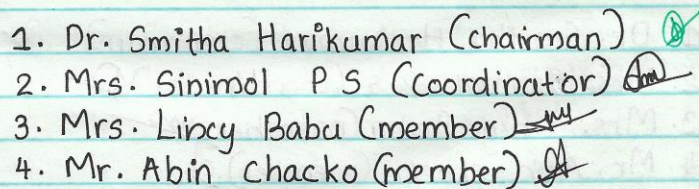 1. Dr. Smitha Harikumar (chairman)
2. Mrs. Sinimol P S (Coordinator)
3. Mrs. Lincy Babu (member)
4. Mr. Abin chacko (member)